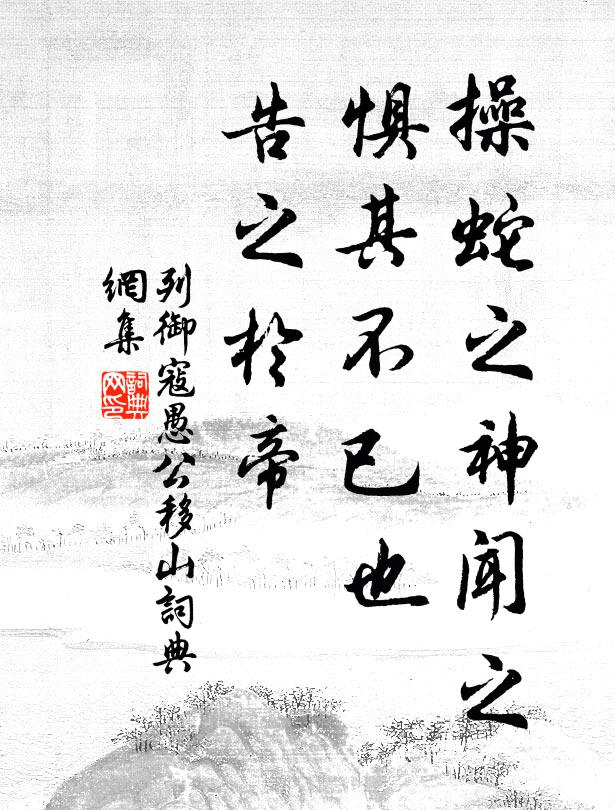 操蛇之神聞之
懼其不已也
告之於帝
列御寇愚公移山詞典
網集
詞典
網印